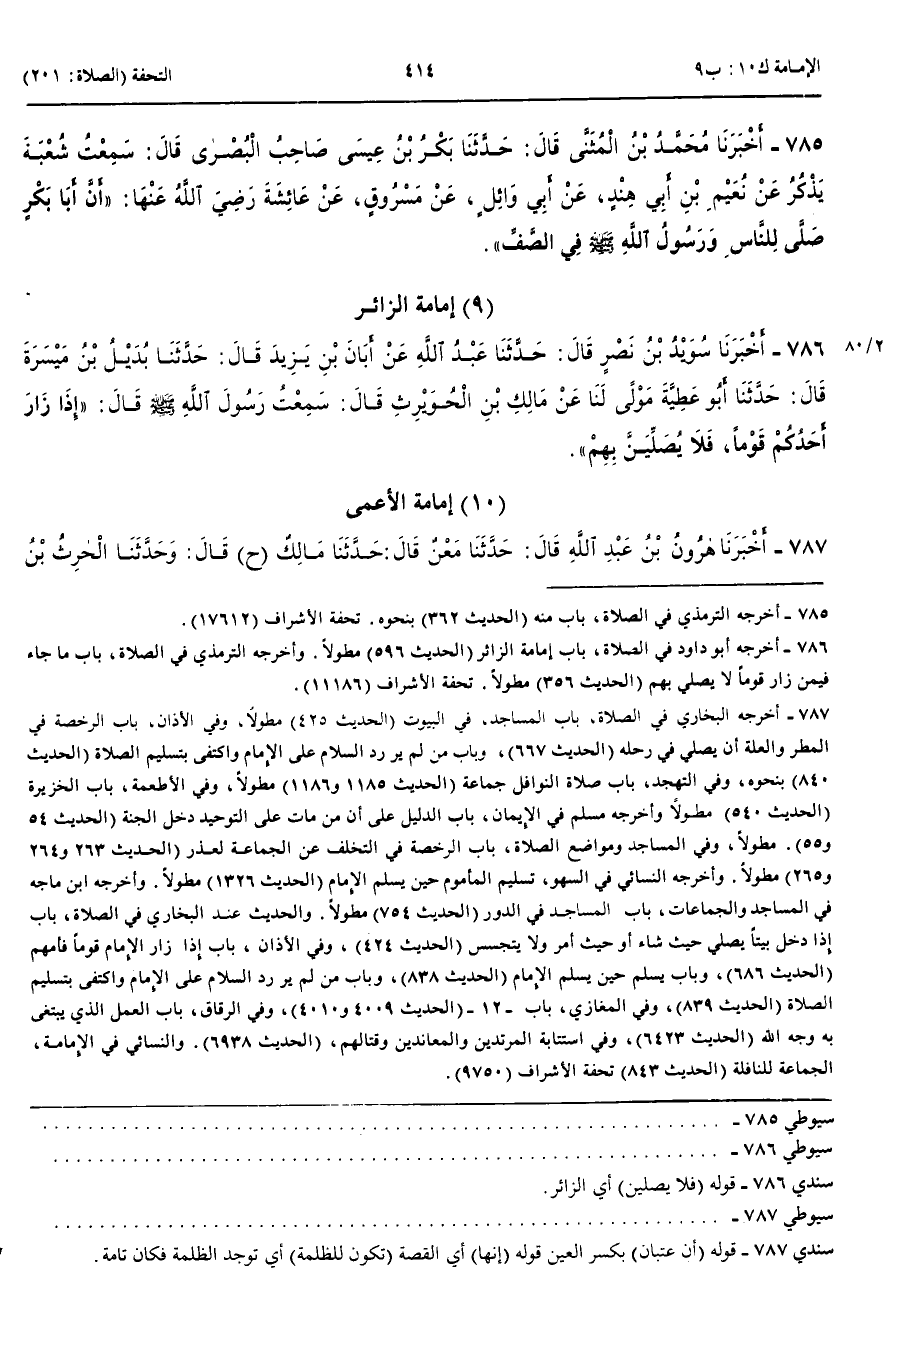 الإمامة ك١٠: ب٩
٤١٤
التحفة (الصلاة: ٢٠١)
٧٨٥ ـ أَخْبَرَنَا مُحَمَّدُ بْنُ الْمُثَنَّى قَالَ: حَدَّثَنَا بَكْرُ بْنُ عِيسَى صَاحِبُ الْبُصْرَى قَالَ: سَمِعْتُ شُعْبَةَ
يَذْكُرُ عَنْ نُعَيْمِ بْنِ أَبِي هِنْدٍ، عَنْ أَبِي وَائِلٍ، عَنْ مَسْرُوقٍ، عَنْ عَائِشَةَ رَضِيَ ٱللَّهُ عَنْهَا: «أَنَّ أَبَا بَكْرٍ
صَلَّى لِلنَّاسِ وَرَسُولُ ٱللَّهِ ﷺ فِي الصَّفِّ».
(٩) إمامة الزائر
٨٠/٢
٧٨٦ ـ أَخْبَرَنَا سُوَيْدُ بْنُ نَصْرٍ قَالَ: حَدَّثَنَا عَبْدُ ٱللَّهِ عَنْ أَبَانَ بْنِ يَزِيدَ قَالَ: حَدَّثَنَا بُدَيْلُ بْنُ مَيْسَرَةَ
قَالَ: حَدَّثَنَا أَبُو عَطِيَّةَ مَوْلًى لَنَا عَنْ مَالِكِ بْنِ الْحُوَيْرِثِ قَالَ: سَمِعْتُ رَسُولَ ٱللَّهِ ﷺ قَالَ: «إِذَا زَارَ
أَحَدُكُمْ قَوْماً، فَلَا يُصَلِّيَنَّ بِهِمْ».
(١٠) إمامة الأعمى
٧٨٧ ـ أَخْبَرَنَا هٰرُونُ بْنُ عَبْدِ ٱللَّهِ قَالَ: حَدَّثَنَا مَعْنٌ قَالَ: حَدَّثَنَا مَالِكٌ (ح) قَالَ: وَحَدَّثَنَا الْحٰرِثُ بْنُ
٧٨٥ ـ أخرجه الترمذي في الصلاة، باب منه (الحديث ٣٦٢) بنحوه. تحفة الأشراف (١٧٦١٢).
٧٨٦ ـ أخرجه أبو داود في الصلاة، باب إمامة الزائر (الحديث ٥٩٦) مطولاً. وأخرجه الترمذي في الصلاة، باب ما جاء
فيمن زار قوماً لا يصلي بهم (الحديث ٣٥٦) مطولاً. تحفة الأشراف (١١١٨٦).
٧٨٧ ـ أخرجه البخاري في الصلاة، باب المساجد، في البيوت (الحديث ٤٢٥) مطولاً، وفي الأذان، باب الرخصة في
المطر والعلة أن يصلي في رحله (الحديث ٦٦٧)، وباب من لم ير رد السلام على الإمام واكتفى بتسليم الصلاة (الحديث
٨٤٠) بنحوه، وفي التهجد، باب صلاة النوافل جماعة (الحديث ١١٨٥ و١١٨٦) مطولاً، وفي الأطعمة، باب الخزيرة
(الحديث ٥٤٠) مطولاً وأخرجه مسلم في الإيمان، باب الدليل على أن من مات على التوحيد دخل الجنة (الحديث ٥٤
و٥٥). مطولاً، وفي المساجد ومواضع الصلاة، باب الرخصة في التخلف عن الجماعة لعذر (الحديث ٢٦٣ و٢٦٤
و٢٦٥) مطولاً. وأخرجه النسائي في السهو، تسليم المأموم حين يسلم الإمام (الحديث ١٣٢٦) مطولاً. وأخرجه ابن ماجه
في المساجد والجماعات، باب المساجد في الدور (الحديث ٧٥٤) مطولاً. والحديث عند البخاري في الصلاة، باب
إذا دخل بيتاً يصلي حيث شاء أو حيث أمر ولا يتجسس (الحديث ٤٢٤)، وفي الأذان، باب إذا زار الإمام قوماً فأمهم
(الحديث ٦٨٦)، وباب يسلم حين يسلم الإمام (الحديث ٨٣٨)، وباب من لم ير رد السلام على الإمام واكتفى بتسليم
الصلاة (الحديث ٨٣٩)، وفي المغازي، باب ـ١٢ ـ(الحديث ٤٠٠٩ و٤٠١٠)، وفي الرقاق، باب العمل الذي يبتغى
به وجه الله (الحديث ٦٤٢٣)، وفي استتابة المرتدين والمعاندين وقتالهم، (الحديث ٦٩٣٨). والنسائي في الإمامة،
الجماعة للنافلة (الحديث ٨٤٣) تحفة الأشراف (٩٧٥٠).
سيوطي ٧٨٥ ـ . . . . . . . . . . . . . . . . . . . .
سيوطي ٧٨٦ ـ . . . . . . . . . . . . . . . . . . . .
سندي ٧٨٦ ـ قوله (فلا يصلين) أي الزائر.
سيوطي ٧٨٧ ـ . . . . . . . . . . . . . . . . . . . .
سندي ٧٨٧ ـ قوله (أن عتبان) بكسر العين قوله (إنها) أي القصة (تكون للظلمة) أي توجد الظلمة فكان تامة.